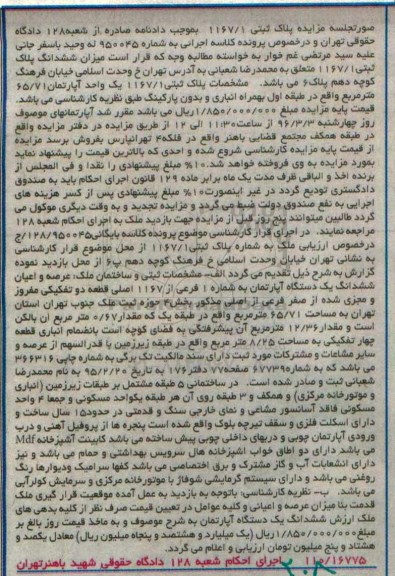 صورتجلسه مزایده پلاک ثبتی ۱۱۶۷/۱ بموجب دادنامه صادره از شعبه۱۲۸ دادگاه
حقوقی تهران و درخصوص پرونده کلاسه اجرائی به شماره ۹۵۰۰۴۵ له وحید باسفر جانی
علیه سید مرتضی غم خوار به خواسته مطالبه وجه که قرار است میزان ششدانگ پلاک
ثبتی۱۱۶۷/۱ متعلق به محمدرضا شعبانی به آدرس تهران خ وحدت اسلامی خیابان فرهنگ
کوچه دهم پلاک۶ می باشد. مشخصات پلاک ثبتی۱۱۶۷/۱ یک واحد آپارتمان۶۵/۷۱
مترمربع واقع در طبقه اول بهمراه انباری و بدون پارکینگ طبق نظریه کارشناسی می باشد.
قیمت پایه مزایده مبلغ ۱/۸۵۰/۰۰۰/۰۰۰ریال می باشد مقرر شد آپارتمانهای موصوف
روز چهارشنبه ۹۶/۳/۳ از ساعت۱۱:۳۰ الی ۱۲ از طریق مزایده در دفتر مزایده واقع
در طبقه همکف مجتمع قضایی باهنر واقع در فلکه۴ تهرانپارس بفروش برسد مزایده
از قیمت پایه مزایده کارشناسی شروع شده و احدی که بالاترین قیمت را پیشنهاد نماید
بمورد مزایده به وی فروخته خواهد شد.۱۰% مبلغ پیشنهادی را نقدا و فی المجلس از
برنده اخذ و الباقی ظرف مدت یک ماه برابر ماده ۱۲۹ قانون اجرای احکام باید به صندوق
دادگستری تودیع گردد در غیر اینصورت۱۰% مبلغ پیشنهادی پس از کسر هزینه های
اجرایی به نفع صندوق دولت ضبط می گردد و مزایده تجدید و به وقت دیگری موکول می
گردد طالبین میتوانند پنج روز قبل از مزایده جهت بازدید ملک به اجرای احکام شعبه ۱۲۸
مراجعه نمایند. در اجرای قرار کارشناسی موضوع پرونده کلاسه بایگانی۱۲۸/۹۵۰۰۴۵/ج
درخصوص ارزیابی ملک به شماره پلاک ثبتی۱۱۶۷/۱ از محل موضوع قرار کارشناسی
به نشانی تهران خیابان وحدت اسلامی خ فرهنگ کوچه دهم پ۶ از محل بازدید نموده
گزارش به شرح ذیل تقدیم می گردد الف- مشخصات ثبتی و ساختمان ملک: عرصه و اعیان
ششدانگ یک دستگاه آپارتمان به شماره ۱ فرعی از۱۱۶۷ اصلی قطعه دو تفکیکی مفروز
و مجزی شده از صفر فرعی از اصلی مذکور بخش۴ حوزه ثبت ملک جنوب تهران استان
تهران به مساحت ۶۵/۷۱ مترمربع واقع در طبقه یک که مقدار۰/۶۷ متر مربع آن بالکن
است و مقدار۱۲/۳۶ مترمربع آن پیشرفتگی به فضای کوچه است بانضمام انباری قطعه
چهار تفکیکی به مساحت ۸/۲۵ متر مربع واقع در طبقه زیرزمین با قدرالسهم از عرصه و
سایر مشاعات و مشترکات مورد ثبت دارای سند مالکیت تک برگی به شماره چاپی ۳۶۶۳۱۶
می باشد که به شماره۶۷۷۳۹ صفحه۷۷ دفتر۱۷۶ به تاریخ ۹۵/۲/۲۰ به نام محمدرضا
شعبانی ثبت و صادر شده است. در ساختمانی ۵ طبقه مشتمل بر طبقات زیرزمین (انباری
و موتورخانه مرکزی) و همکف و ۳ طبقه روی آن هر طبقه یکواحد مسکونی و جمعا ۴ واحد
مسکونی فاقد آسانسور مشاعی و نمای خارجی سنگ و قدمتی در حدود۱۵ سال ساخت و
دارای اسکلت فلزی و سقف تیرچه بلوک واقع شده است پنجره ها از پروفیل آهنی و درب
ورودی آپارتمان چوبی و دربهای داخلی چوبی پیش ساخته می باشد کابینت آشپزخانه Mdf
می باشد دارای دو اطاق خواب آشپزخانه هال سرویس بهداشتی و حمام می باشد و نیز
دارای انشعابات آب و گاز مشترک و برق اختصاصی می باشد کفها سرامیک ودیوارها رنگ
روغنی می باشد و دارای سیستم گرمایشی شوفاژ با موتورخانه مرکزی و سرمایش کولرآبی
می باشد. ب- نظریه کارشناسی: باتوجه به بازدید به عمل آمده موقعیت قرار گیری ملک
قدمت بنا میزان عرصه و اعیانی و کلیه عوامل در تعیین قیمت صرف نظر از کلیه بدهی های
ملک ارزش ششدانگ یک دستگاه آپارتمان به شرح موصوف و به ماخذ قیمت روز بالغ بر
مبلغ۱/۸۵۰/۰۰۰/۰۰۰ریال (یک میلیارد و هشتصد و پنجاه میلیون ریال) معادل یکصد و
هشتاد و پنج میلیون تومان ارزیابی و اعلام می گردد.
۱۱۰/۱۶۷۷۵ اجرای احکام شعبه ۱۲۸ دادگاه حقوقی شهید باهنرتهران